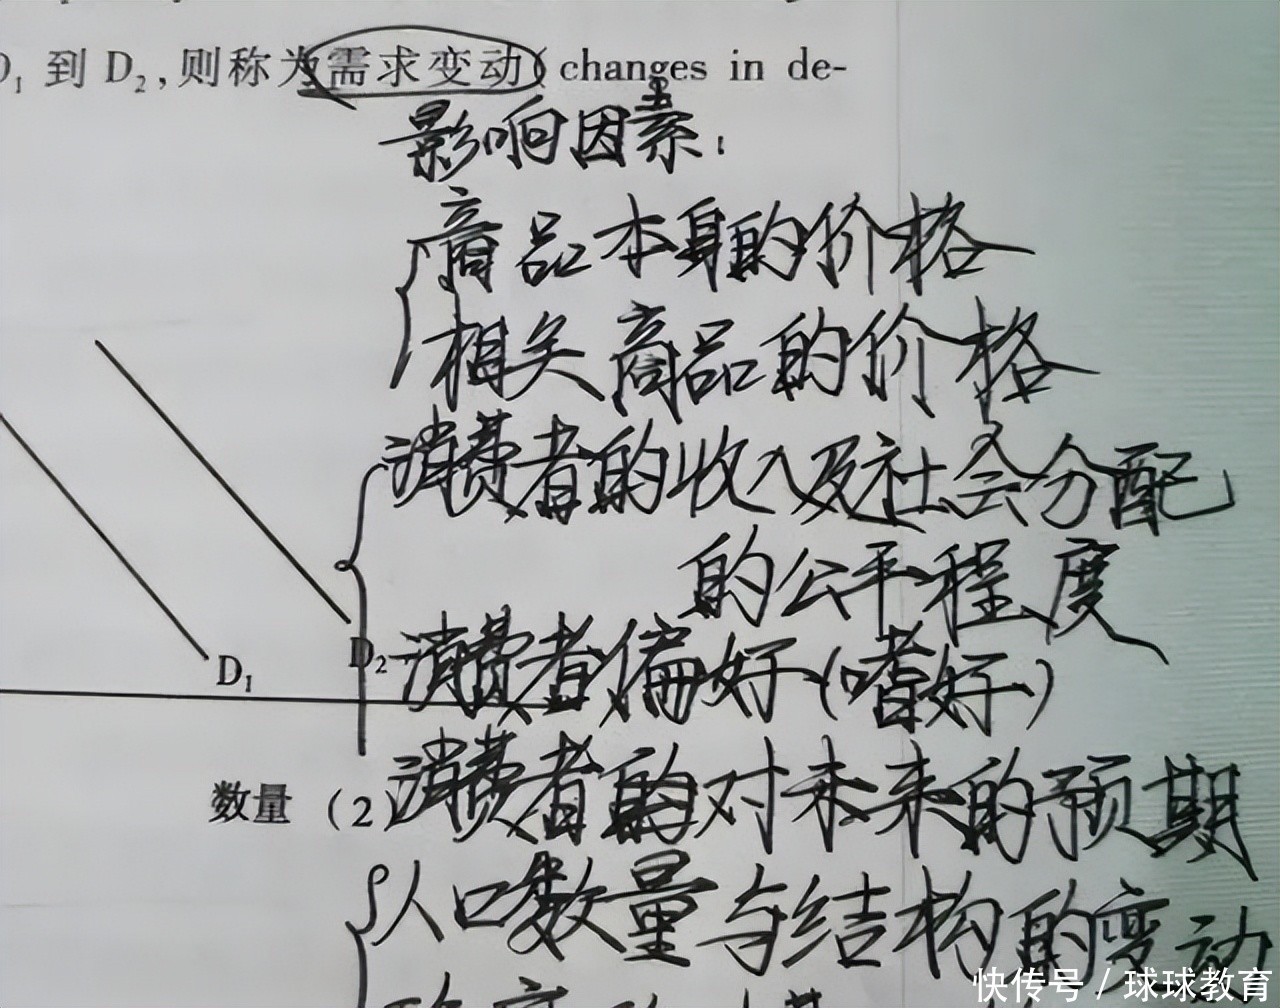 D₁ 到 D₂,则称为需求变动( changes in de-
影响因素:
商品本身的价格
相关商品的价格
消费者的收入及社会分配
的公平程度
消费者偏好(嗜好)
D₁
D₂
消费者的对未来的预期
数量 (2)
人口数量与结构的变动
快传号 / 球球教育